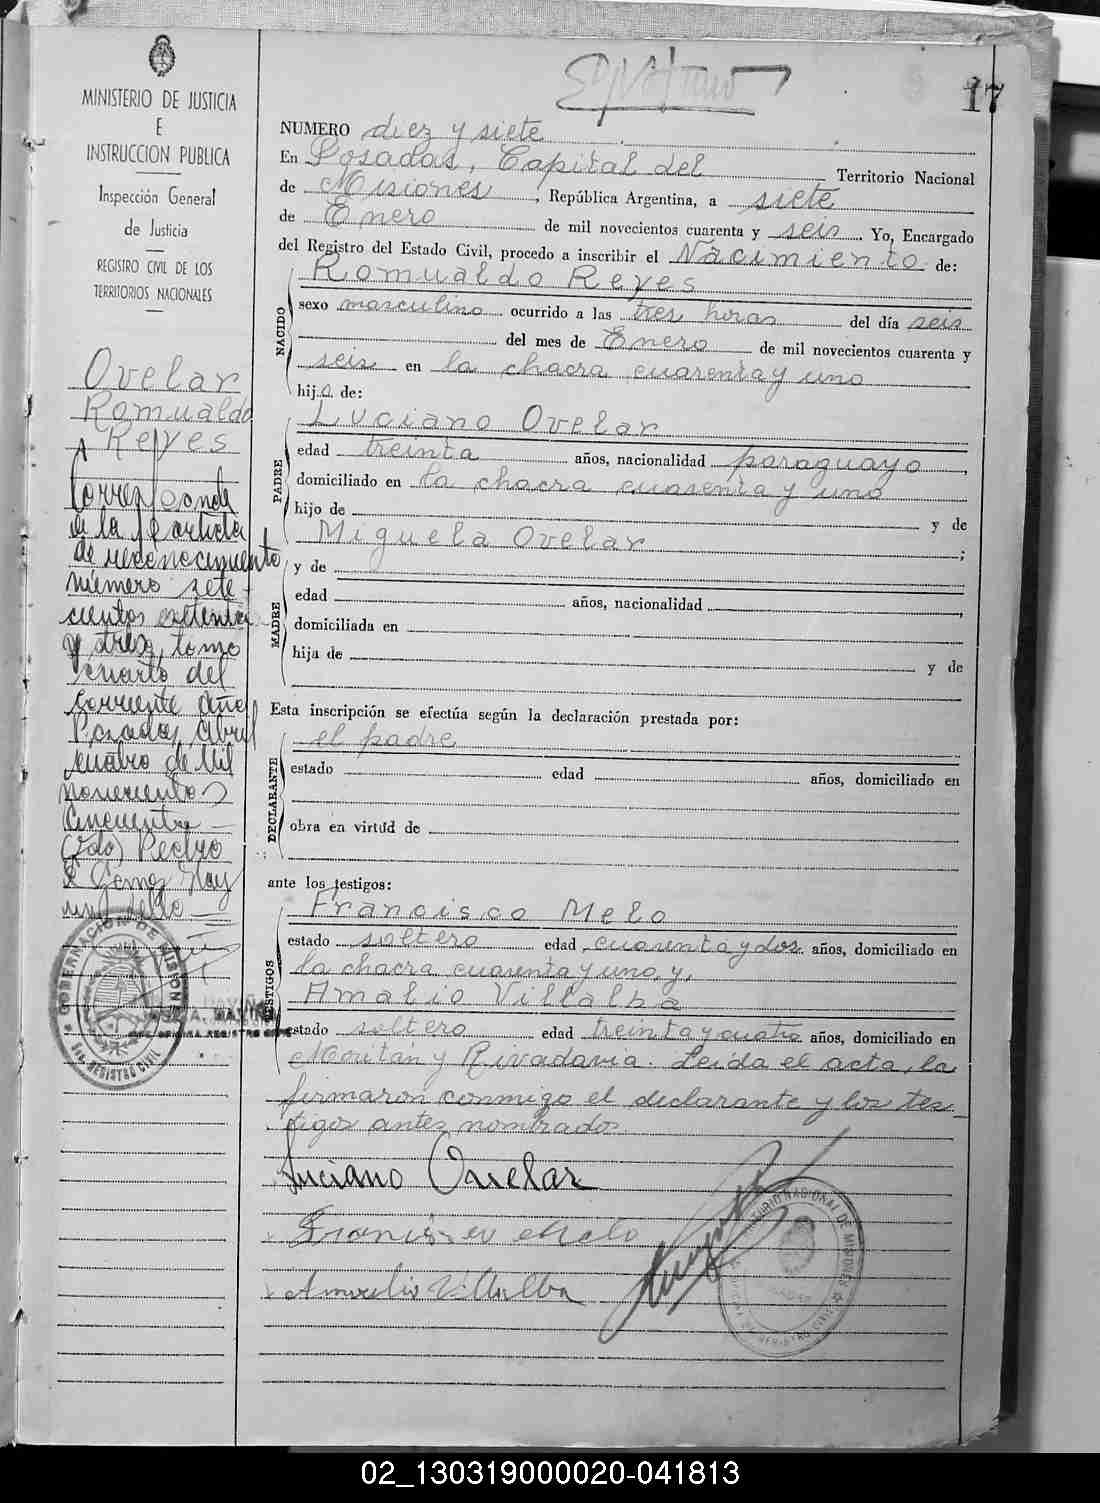 17
MINISTERIO DE JUSTICIA
E
INSTRUCCION PUBLICA
Inspección General
de Justicia
REGISTRO CIVIL DE LOS
TERRITORIOS NACIONALES
Ovelar
Romualdo
Reyes
Corresponde
a la partida
de reconocimiento
número sete
cientos setenta
y tres, tomo
cuarto del
corriente año
Posadas, abril
cuatro de Mil
novecientos
cincuenta
(Fdo) Pedro
GOBERNACION DE MISIONES
REGISTRO CIVIL
NUMERO diez y siete
En Posadas, Capital del Territorio Nacional
de Misiones, República Argentina, a siete
de Enero de mil novecientos cuarenta y seis. Yo, Encargado
del Registro del Estado Civil, procedo a inscribir el Nacimiento de:
NACIDO
Romualdo Reyes
sexo masculino ocurrido a las tres horas del día seis
del mes de Enero de mil novecientos cuarenta y
seis en la chacra cuarenta y uno
hijo de:
PADRE
Luciano Ovelar
edad treinta años, nacionalidad paraguayo,
domiciliado en la chacra cuarenta y uno
hijo de y de
Miguela Ovelar;
MADRE
y de
edad años, nacionalidad
domiciliada en
hija de y de
Esta inscripción se efectúa según la declaración prestada por:
DECLARANTE
el padre
estado edad años, domiciliado en
obra en virtud de
ante los testigos:
TESTIGOS
Francisco Melo
estado soltero edad cuarenta y dos años, domiciliado en
la chacra cuarenta y uno, y,
Amalio Villalba
estado soltero edad treinta y cuatro años, domiciliado en
y Rivadavia. Leida el acta, la
firmaron conmigo el declarante y los tes
tigos antes nombrados
Luciano Ovelar
Francisco Melo
Amalio Villalba
02_130319000020-041813